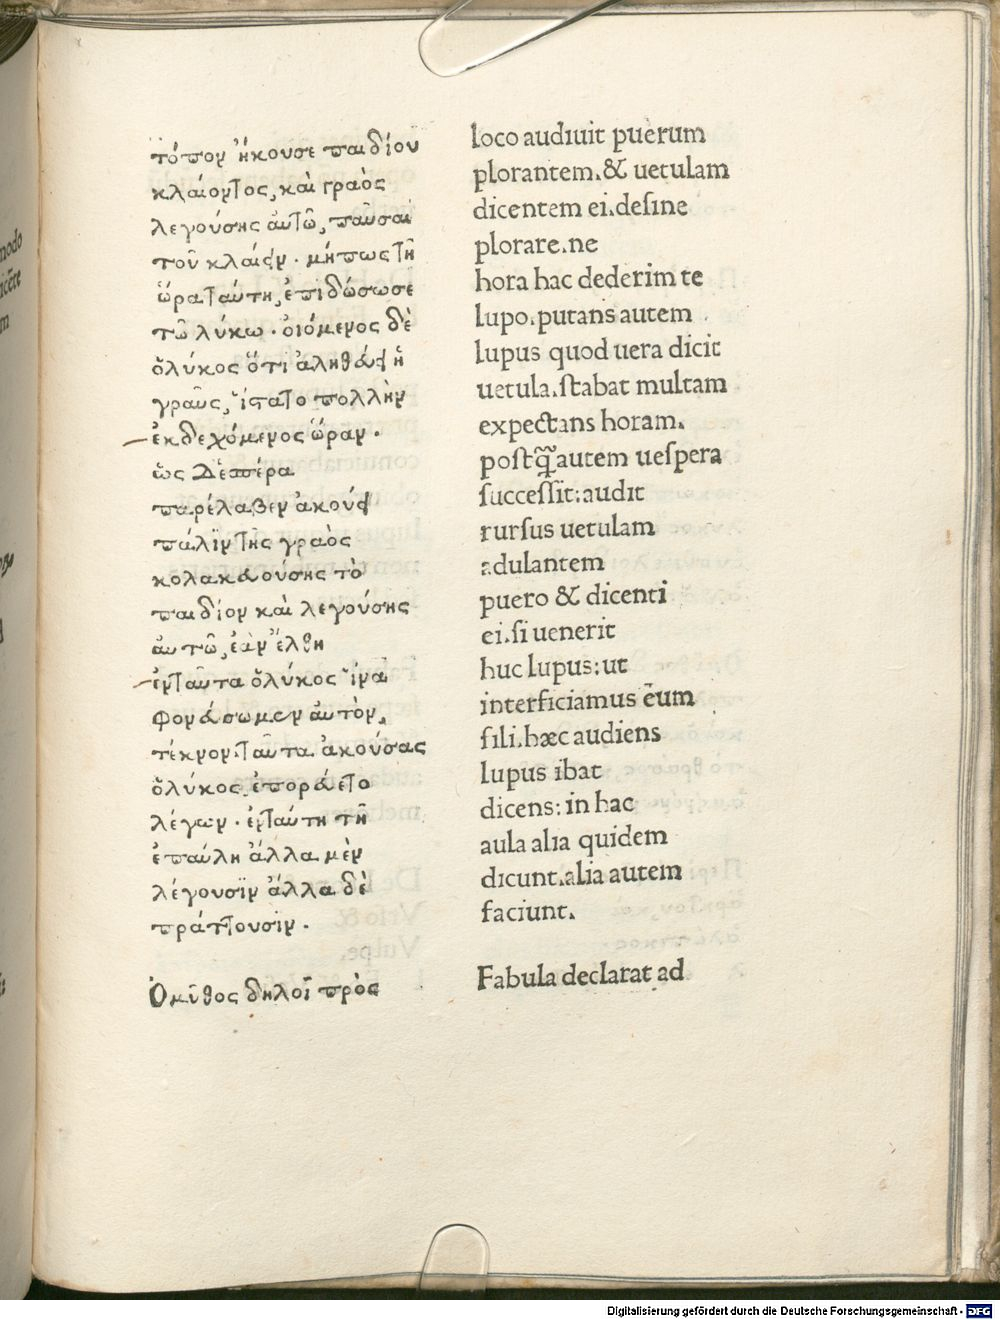 τόπον ἤκουσε παιδίου
κλαίοντος, καὶ γραὸς
λεγούσης ἀυτῶ, παῦσαι
τοῦ κλαίειν. μήπως τῆ
ὥρα ταύτη, ἐπιδώσωσε
τῶ λύκω. οἰόμενος δὲ
ὁλύκος ὅτι ἀληθεύει ἡ
γραῦς, ἵστατο πολλὴν
ἐκδεχόμενος ὥραν.
ὡς δ ἑσπέρα
παρέλαβεν ἀκούει
πάλιν τῆς γραὸς
κολακευούσης τὸ
παιδίον καὶ λεγούσης
ἀυτῶ, ἐὰν ἔλθη
ἐνταῦτα ὁλύκος ἵνα
φονεύσωμεν ἀυτὸν,
τέκνον. ταῦτα ἀκούσας
ὁλύκος, ἐπορεύετο
λέγων. ἐνταύτη τῆ
ἐπαύλη ἄλλα μὲν
λέγουσιν ἄλλα δὲ
πράττουσιν.
Ὁμῦθος δηλοῖ πρὸς
loco audiuit puerum
plorantem.& uetulam
dicentem ei.deſine
plorare.ne
hora hac dederim te
lupo.putans autem
lupus quod uera dicit
uetula.ſtabat multam
expectans horam.
poſtq̃ autem ueſpera
ſucceſſit:audit
rurſus uetulam
adulantem
puero & dicenti
ei.ſi uenerit
huc lupus:ut
interficiamus eum
fili.hæc audiens
lupus ibat
dicens: in hac
aula alia quidem
dicunt.alia autem
faciunt.
Fabula declarat ad
modo
Digitalisierung gefördert durch die Deutsche Forschungsgemeinschaft - DFG